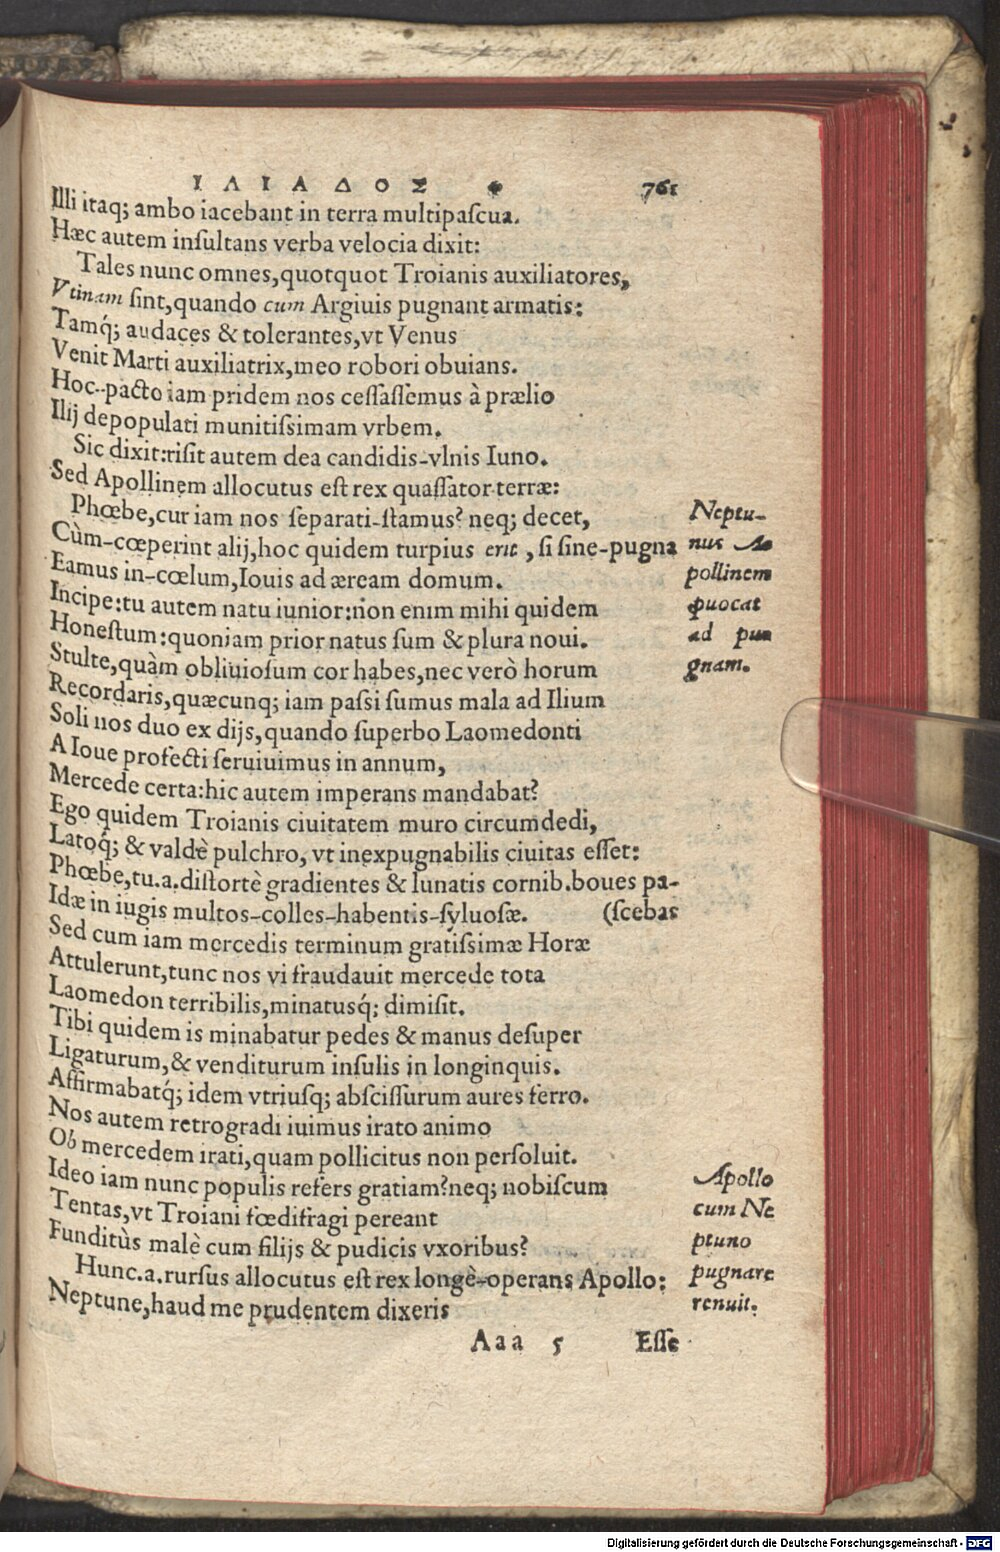 ΙΛΙΑΔΟΣ Φ 761
Illi itaq; ambo iacebant in terra multipaſcua.
Hæc autem inſultans verba velocia dixit:
Tales nunc omnes,quotquot Troianis auxiliatores,
Vtinam ſint,quando cum Argiuis pugnant armatis:
Tamq́; audaces & tolerantes,vt Venus
Venit Marti auxiliatrix,meo robori obuians.
Hoc-pacto iam pridem nos ceſſaſſemus à prælio
Ilij depopulati munitiſsimam vrbem.
Sic dixit:riſit autem dea candidis-vlnis Iuno.
Sed Apollinem allocutus eſt rex quaſſator-terræ:
Phœbe,cur iam nos ſeparati-ſtamus? neq; decet,
Cùm-cœperint alij,hoc quidem turpius erit , ſi ſine-pugna
Eamus in-cœlum,Iouis ad æream domum.
Incipe:tu autem natu iunior:non enim mihi quidem
Honeſtum:quoniam prior natus ſum & plura noui.
Stulte,quàm obliuioſum cor habes,nec verò horum
Recordaris,quæcunq; iam paſsi ſumus mala ad Ilium
Soli nos duo ex dijs,quando ſuperbo Laomedonti
A Ioue profecti ſeruiuimus in annum,
Mercede certa:hic autem imperans mandabat?
Ego quidem Troianis ciuitatem muro circumdedi,
Latoq́; & valdè pulchro, vt inexpugnabilis ciuitas eſſet:
Phœbe,tu.a.diſtortè gradientes & lunatis cornib.boues pa-
Idæ in iugis multos-colles-habentis-ſyluoſæ. (ſcebas
Sed cum iam mercedis terminum gratiſsimæ Horæ
Attulerunt,tunc nos vi fraudauit mercede tota
Laomedon terribilis,minatusq́; dimiſit.
Tibi quidem is minabatur pedes & manus deſuper
Ligaturum,& venditurum inſulis in longinquis.
Affirmabatq́; idem vtriuſq; abſciſſurum aures ferro.
Nos autem retrogradi iuimus irato animo
Ob mercedem irati,quam pollicitus non perſoluit.
Ideo iam nunc populis refers gratiam?neq; nobiſcum
Tentas,vt Troiani fœdifragi pereant
Funditùs malè cum filijs & pudicis vxoribus?
Hunc.a.rurſus allocutus eſt rex longè-operans Apollo:
Neptune,haud me prudentem dixeris
Aaa 5 Eſſe
Neptu-
nus A-
pollinem
puocat
ad pu
gnam.
Apollo
cum Ne
ptuno
pugnare
renuit.
Digitalisierung gefördert durch die Deutsche Forschungsgemeinschaft - DFG